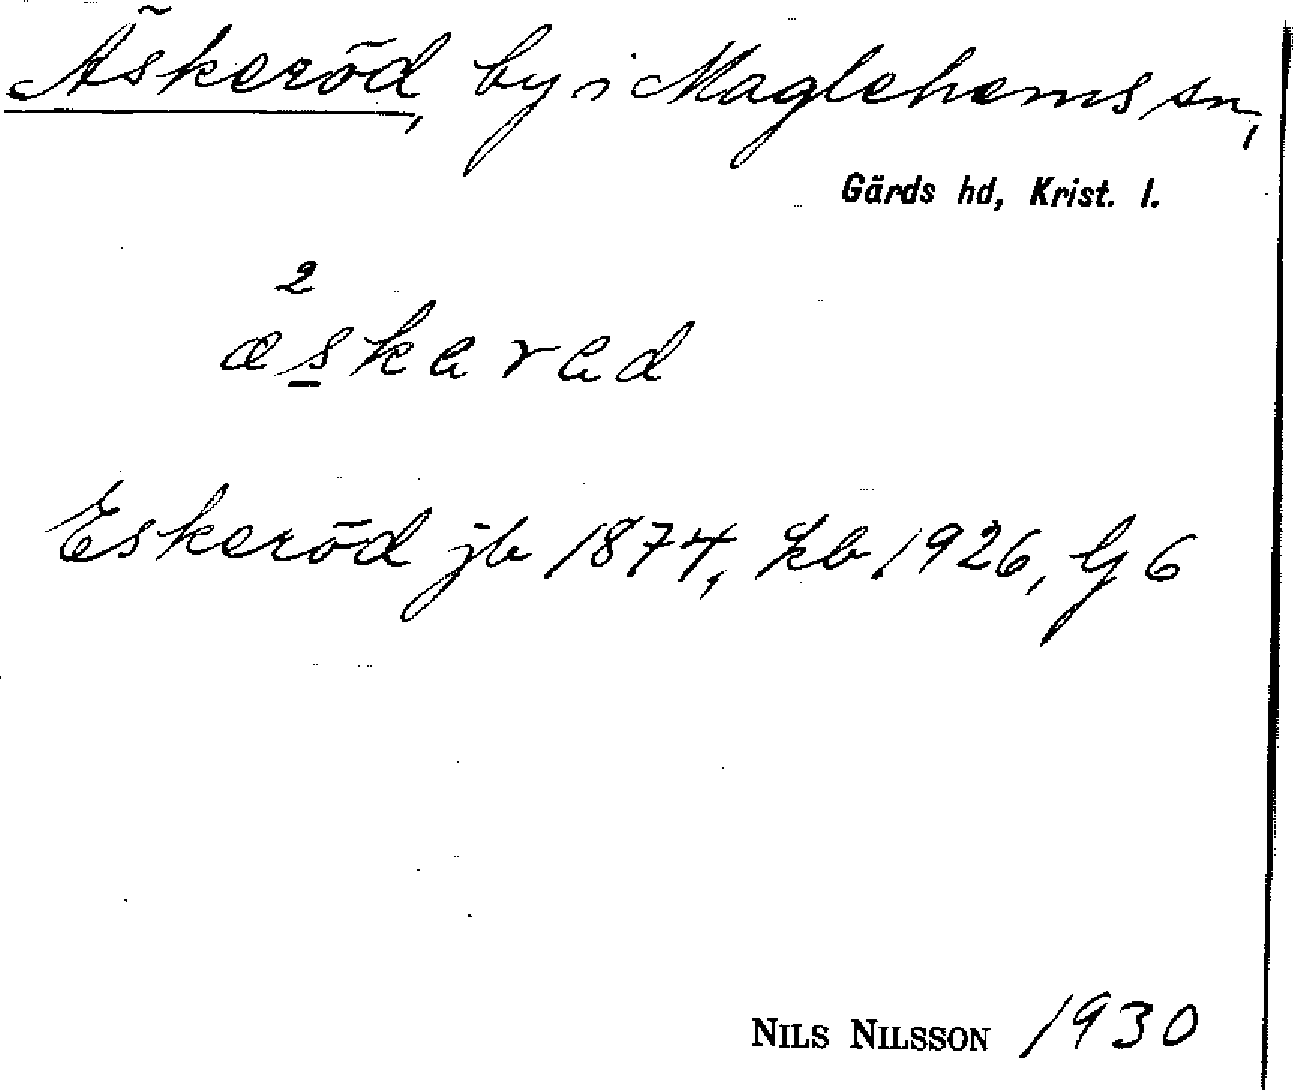 Äskeröd, by i Maglehems sn,
Gärds hd, Krist. l.
2
æskarad
Eskeröd jb 1874, kb 1926, G 6
NILS NILSSON 1930